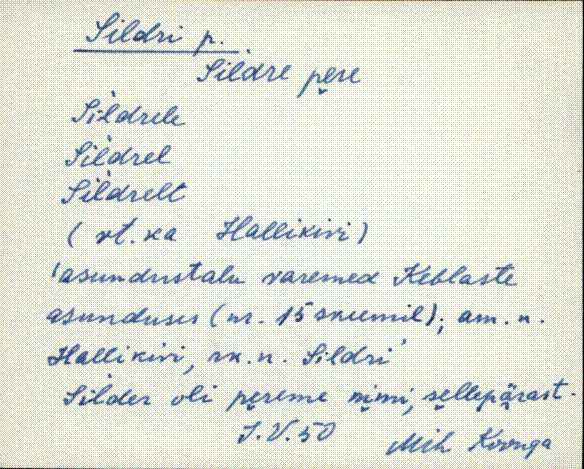 Sildri p.
Sil̀dre pe̮re
Sil̀drele
Sil̀drel
Sil̀drelt
( vt. ka Hallikivi )
'asundustalu varemed Keblaste
asunduses (nr. 15 skeemil); am. n.
Hallikivi, rk. n. Sildri'
Sil̀der oli pe̮reme nimi, se̮llepä̮rast.
J. V. 50
Mih Koonga